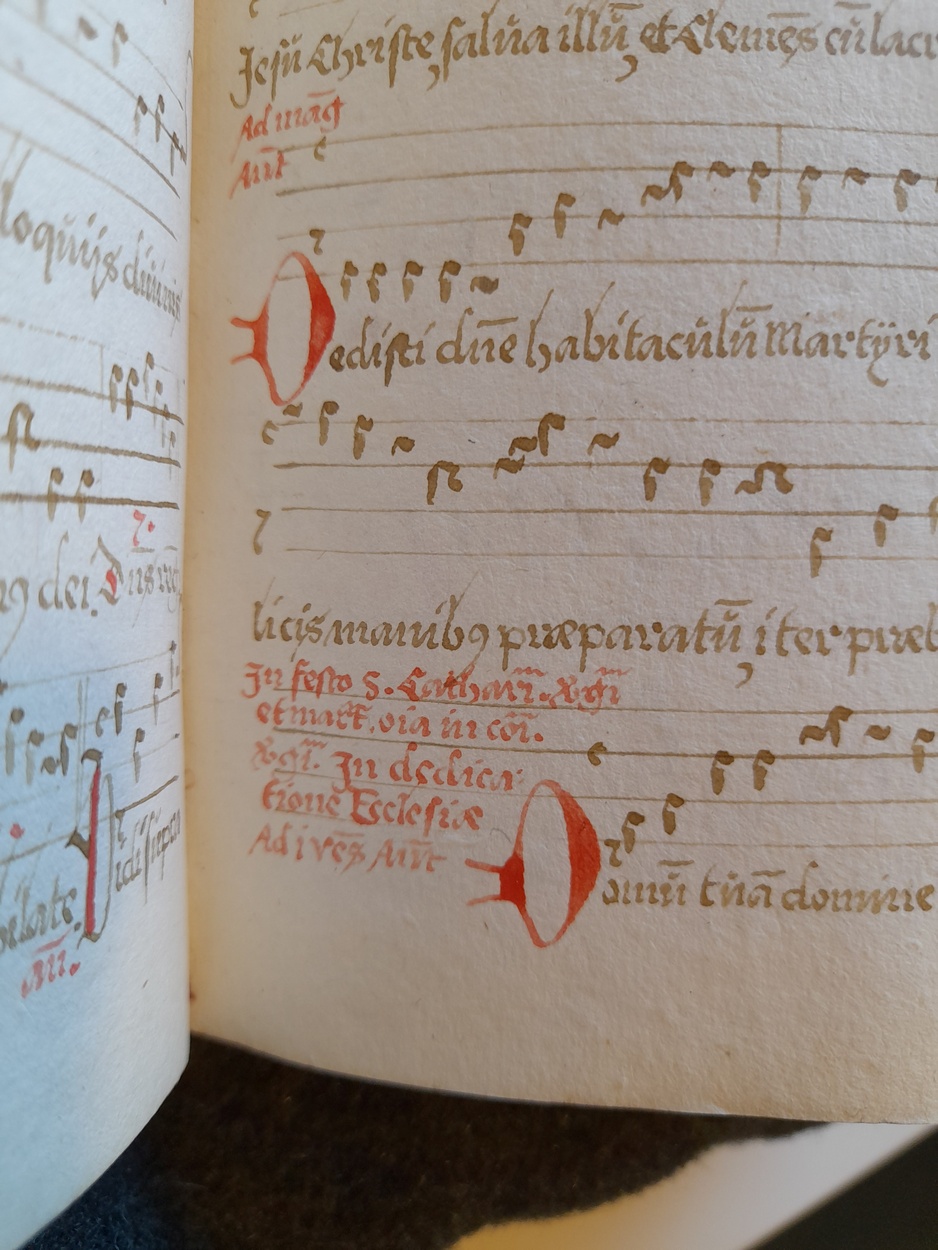 loquijs diuinis
9 dei. Dn̄s
idi supra
uelate.
Añ.
Jesū Christe, salua illū, et Clemēs cū lacr
Ad māg
Añt
Dedisti dn̄e habitaculū Martÿri
licis manib9 præparatū, iter præb
In festo S. Cathar. Vgī
et mart. oīa in cōī.
Vgī. In dedica:
tione Ecclesiæ
Ad i vēs Añt
Domū tuā domine